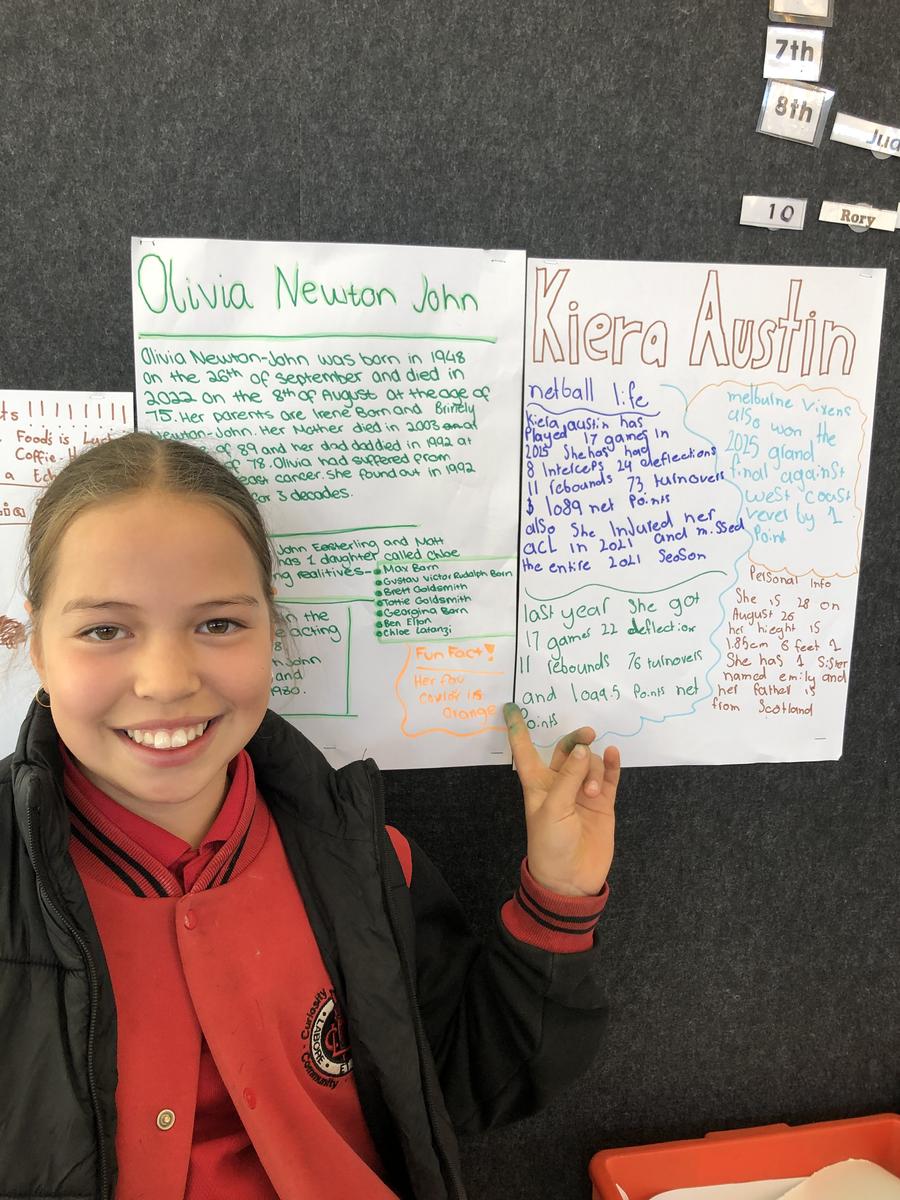 7th
8th
10
Rory
Olivia Newton John
Olivia Newton-John was born in 1948
on the 26th of september and died in
2022 on the 8th of August at the age of
75. Her parents are Irene Born and Brinely
Newton-John. Her Mother died in 2003 at
of 89 and her dad daddied in 1992 at
of 78. Olivia had suffered from
east cancer. she found out in 1992
for 3 decades.
John Easterling and Matt
has 1 daughter called Chloe
ng realitives-
Max Born
Gustav Victor Rudolph Born
Brett Goldsmith
Tottie Goldsmith
Georgina Born
Ben Elton
Chloe Latanzi
n the
acting
8
n John
and
1980.
Fun Fact!
Her fav
coulor is
orange
Kiera Austin
netball life
Kiera austin has
Played 17 games in
2025 She has had
8 Interceps 24 deflections
11 rebounds 73 turnovers
$ 1089 net Points
also She Injured her
ACL in 2021 and missed
the entire 2021 SeaSon
last year She got
17 games 22 deflection
11 rebounds 76 turnovers
and 1009.5 Points net
Points
melbulne Vixens
also won the
2025 gland
final against
west coast
vever by 1
Point
Personal Info
She is 28 on
August 26
her hieght is
1.85cm 6 feet 1
She has 1 Sister
named emily and
her father is
from Scotland
ts
Foods is
Coffie
a
Curiosity
LABORE
Community